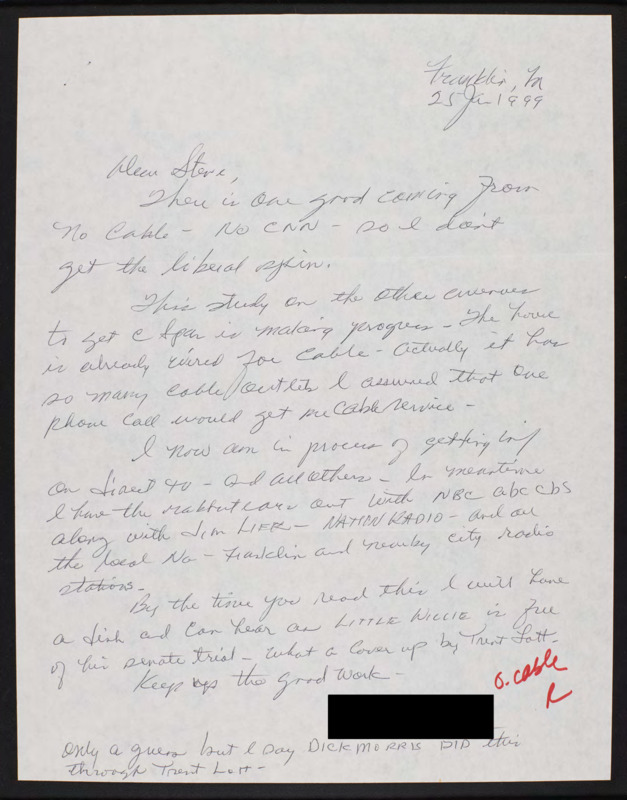 Franklin,
25 Jan 1999
Dear Steve,
There is one good coming from
No Cable - No CNN - so I don't
get the liberal spin.
This study on the other avenues
to get C Span is making progress - The house
is already wired for Cable - Actually it has
so many cable outlets I assumed that one
phone call would get me Cable service -
I now am in process of getting inf
on Direct TV - and all others - In meantime
I have the rabbit ears out with NBC abc cbs
along with Jim LIER - NATION RADIO - and all
the local No - Franklin and nearby city radio
stations -
By the time you read this I will have
a dish and can hear as LITTLE WILLIE is free
of his senate trial - What a cover up by Trent Lott -
Keep up the good work -
O. Cable
R
only a guess but I say DICK MORRIS DID this
through Trent Lott -